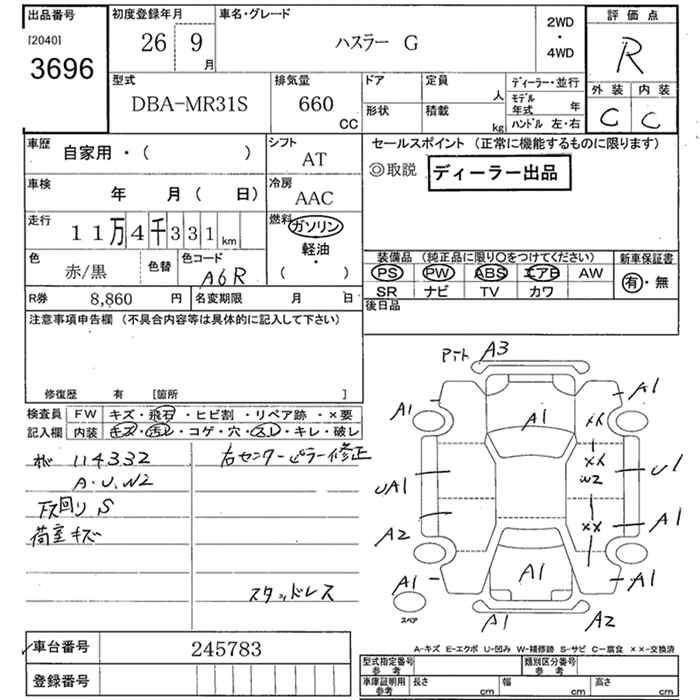 出品番号 初度登録年月 車名・グレード 2WD・4WD 評価点
[2040] 3696 26 9月 ハスラー G R
外装 内装
C C
型式 排気量 ドア 定員 人 ディーラー・並行
DBA-MR31S 660 CC 形状 積載 kg モデル年式 年
ハンドル 左・右
車歴 自家用・( ) シフト AT
セールスポイント (正常に機能するものに限ります)
◎取説 ディーラー出品
車検 年 月 ( 日) 冷房 AAC
走行 11万4千331km 燃料 ガソリン・軽油・( )
色 赤/黒 色替 色コード A6R
R券 8,860 円 名変期限 月 日
装備品 (純正品に限り○をつけてください) 新車保証書
PS PW ABS エアB AW 有・無
SR ナビ TV カワ
後日品
注意事項申告欄 (不具合内容等は具体的に記入して下さい)
修復歴 有 [箇所 ]
検査員 FW キズ・飛石・ヒビ割・リペア跡・×要
記入欄 内装 キズ・汚レ・コゲ・穴・スレ・キレ・破レ
114332 右センターピラー修正
A.U.W2
下回り S
荷室キズ
スタッドレス
A3
A1 A1 A1
××
××
W2
UA1 U1
××
A2 A1
A1 A1 A1
スペア A1 A2
車台番号 245783
登録番号
A-キズ E-エクボ U-凹み W-補修跡 S-サビ C-腐食 ××-交換済
型式指定番号 参考 類別区分番号 参考
車庫証明用 参考 長さ cm 幅 cm 高さ cm